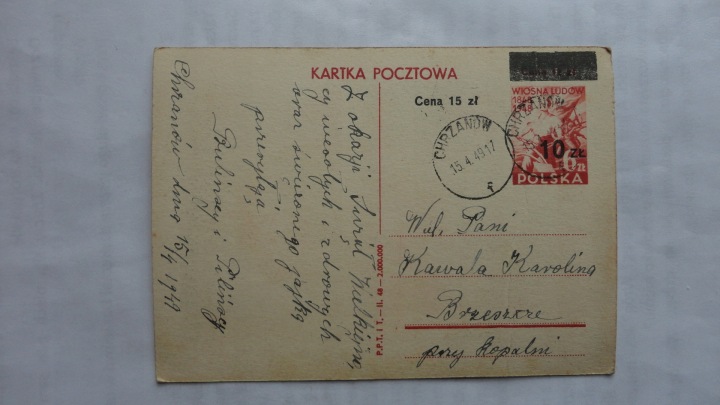 KARTKA POCZTOWA
Cena 15 zł
WIOSNA LUDÓW
10 zł
POLSKA
CHRZANÓW
15.4.49.17
CHRZANÓW
Chrzanów dnia 15/4 1949
Z okazji Świąt Wielkiejnoc,
cy wesołych i zdrowych
oraz święconego jajka
przesyłają
i Pilińscy
P.P.T. i T. — II. 48 — 2.000.000
Wiel. Pani
Kawala Karolina
Brzeszcze
przy kopalni